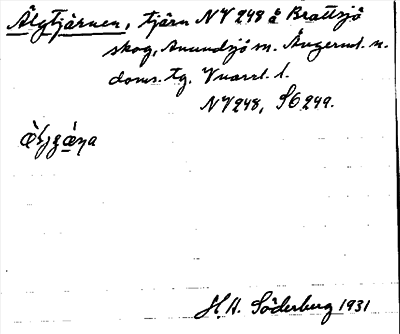 Älgtjärnen, tjärn NV 248 å Brattsjö
skog, Anundsjö sn. Ångerml. n.
doms. tg. Vnorrl. l.
NV 248, SO 249.
H.A. Söderberg 1931